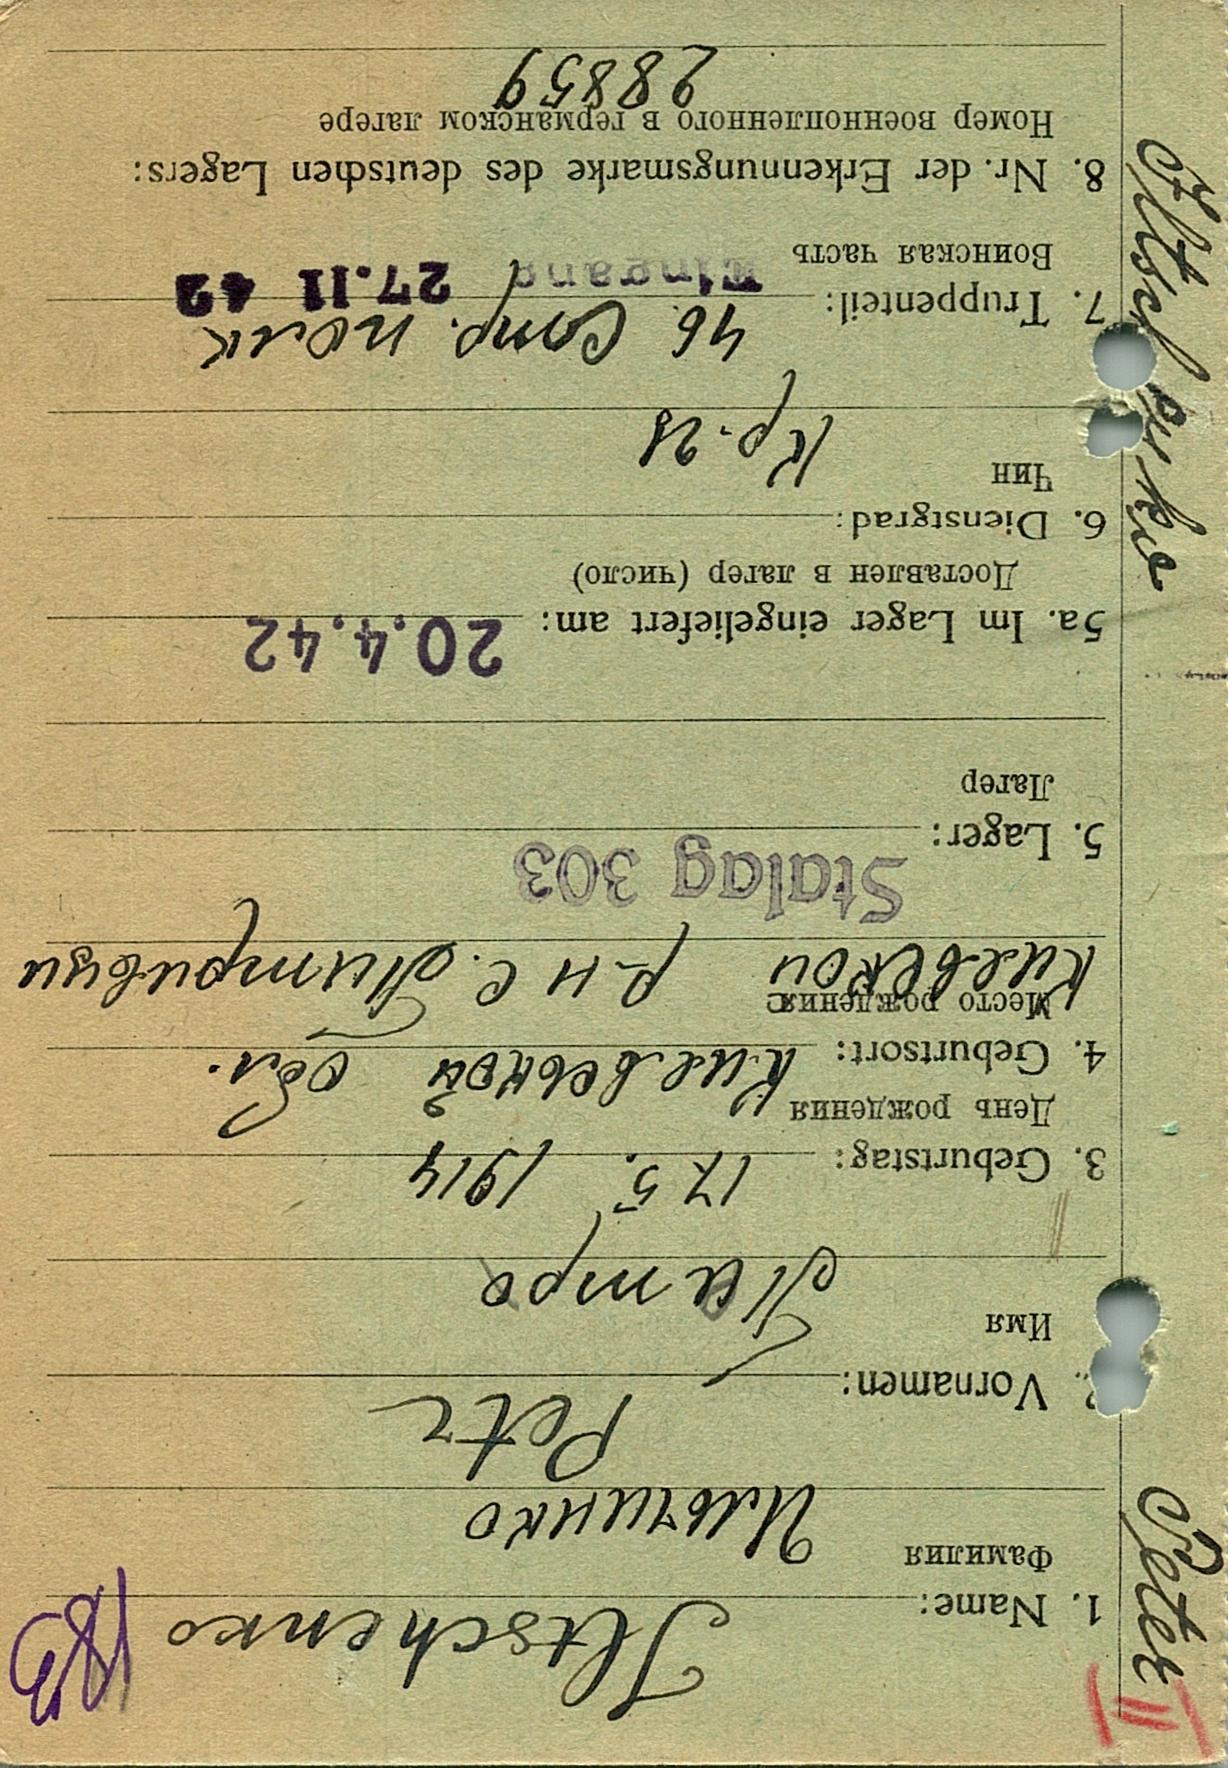 II
183
Iltschenko
1. Name:
Фамилия
Ильчинко
Petr
2. Vornamen:
Имя
Питро
3. Geburtstag: 17 5. 1914
День рождения
4. Geburtsort: Киевской обл.
Место рождения
Киевской р-н с.
Stalag 303
5. Lager:
Лагер
5a. Im Lager eingeliefert am: 20.4.42
Доставлен в лагер (число)
6. Dienstgrad:
Чин
Кр-
7. Truppenteil: 46. Стр. полк
Воинская часть
Eingang 27.11 42
8. Nr. der Erkennungsmarke des deutschen Lagers:
Номер военнопленного в германском лагере
28859
Peter
Iltschenko